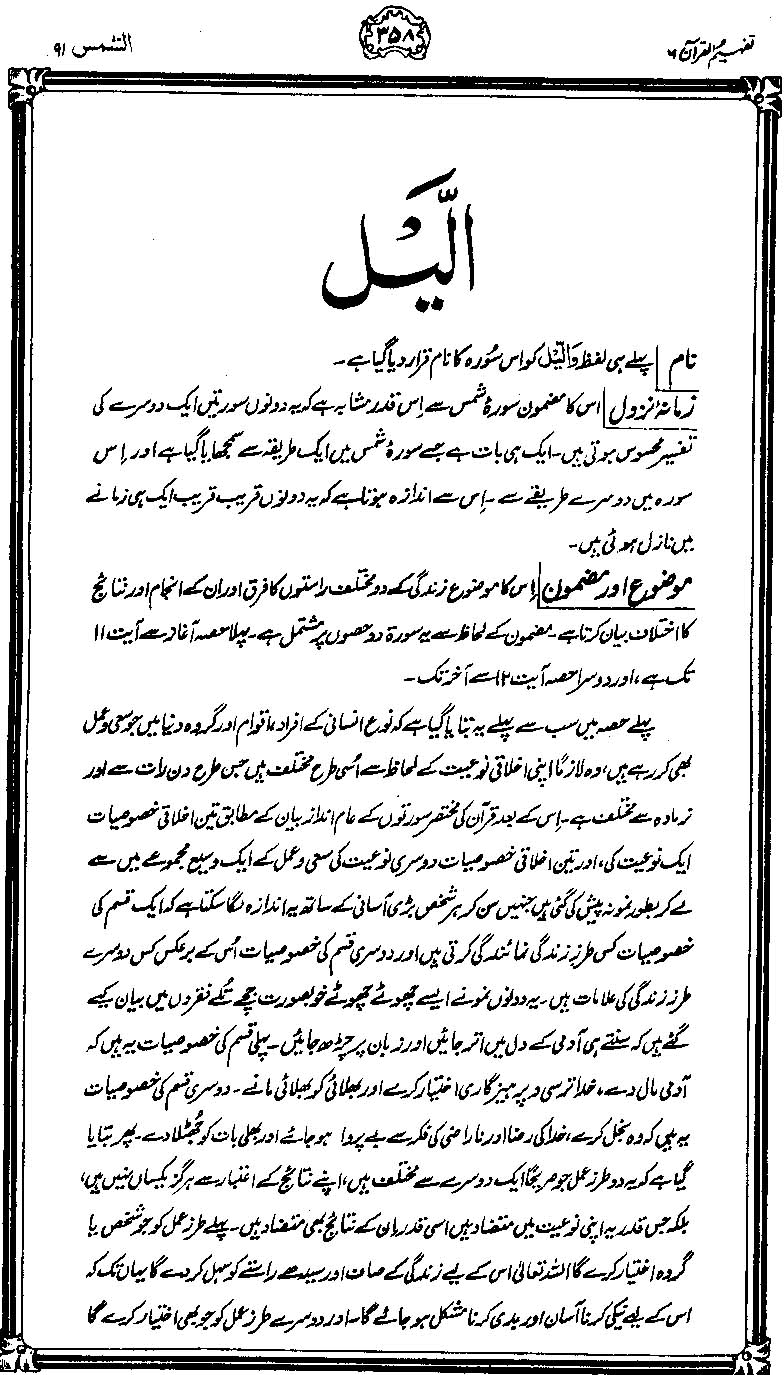 تفہیم القرآن ۶
۳۵۸
الشمس ۹۱
الّیل
نام پہلے ہی لفظ وَالَّیْل کو اس سُورہ کا نام قرار دیا گیا ہے۔
زمانۂ نزول اس کا مضمون سورۂ شمس سے اِس قدر مشابہ ہے کہ یہ دونوں سورتیں ایک دوسرے کی
تفسیر محسوس ہوتی ہیں۔ ایک ہی بات ہے جسے سورۂ شمس میں ایک طریقہ سے سمجھایا گیا ہے اور اِس
سورہ میں دوسرے طریقے سے۔ اِس سے اندازہ ہوتا ہے کہ یہ دونوں قریب قریب ایک ہی زمانے
میں نازل ہوئی ہیں۔
موضوع اور مضمون اِس کا موضوع زندگی کے دو مختلف راستوں کا فرق اور ان کے انجام اور نتائج
کا اختلاف بیان کرتا ہے۔ مضمون کے لحاظ سے یہ سورۃ دو حصوں پر مشتمل ہے۔ پہلا حصہ آغاز سے آیت ۱۱
تک ہے، اور دوسرا حصہ آیت ۱۲ سے آخر تک۔
پہلے حصہ میں سب سے پہلے یہ بتایا گیا ہے کہ نوع انسانی کے افراد، اقوام اور گروہ دنیا میں جو سعی و عمل
بھی کر رہے ہیں، وہ لازمًا اپنی اخلاقی نوعیت کے لحاظ سے اُسی طرح مختلف ہیں جس طرح دن رات سے اور
نر مادہ سے مختلف ہے۔ اِس کے بعد قرآن کی مختصر سورتوں کے عام اندازِ بیان کے مطابق تین اخلاقی خصوصیات
ایک نوعیت کی، اور تین اخلاقی خصوصیات دوسری نوعیت کی سعی و عمل کے ایک وسیع مجموعے میں سے
لے کر بطور نمونہ پیش کی گئی ہیں جنہیں سن کر ہر شخص بڑی آسانی کے ساتھ یہ اندازہ لگا سکتا ہے کہ ایک قسم کی
خصوصیات کس طرزِ زندگی نمائندگی کرتی ہیں اور دوسری قسم کی خصوصیات اُس کے برعکس کس دوسرے
طرزِ زندگی کی علامات ہیں۔ یہ دونوں نمونے ایسے چھوٹے چھوٹے خوبصورت جچے تُلے فقروں میں بیان کیے
گئے ہیں کہ سنتے ہی آدمی کے دل میں اتر جائیں اور زبان پر چڑھ جائیں۔ پہلی قسم کی خصوصیات یہ ہیں کہ
آدمی مال دے، خدا ترسی و پرہیزگاری اختیار کرے اور بھلائی کو بھلائی مانے۔ دوسری قسم کی خصوصیات
یہ ہیں کہ وہ بخل کرے، خدا کی رضا اور ناراضی کی فکر سے بے پروا ہو جائے اور بھلی بات کو جُھٹلا دے۔ پھر بتایا
گیا ہے کہ یہ دو طرزِ عمل جو صریحًا ایک دوسرے سے مختلف ہیں، اپنے نتائج کے اعتبار سے ہرگز یکساں نہیں ہیں،
بلکہ جس قدر یہ اپنی نوعیت میں متضاد ہیں اسی قدر ان کے نتائج بھی متضاد ہیں۔ پہلے طرزِ عمل کو جو شخص یا
گروہ اختیار کرے گا اللہ تعالیٰ اس کے لیے زندگی کے صاف اور سیدھے راستے کو سہل کر دے گا یہاں تک کہ
اس کے لیے نیکی کرنا آسان اور بدی کرنا مشکل ہو جائے گا۔ اور دوسرے طرزِ عمل کو جو بھی اختیار کرے گا